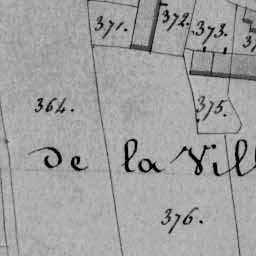 371.
372.
373.
364.
375.
de la Vill
376.